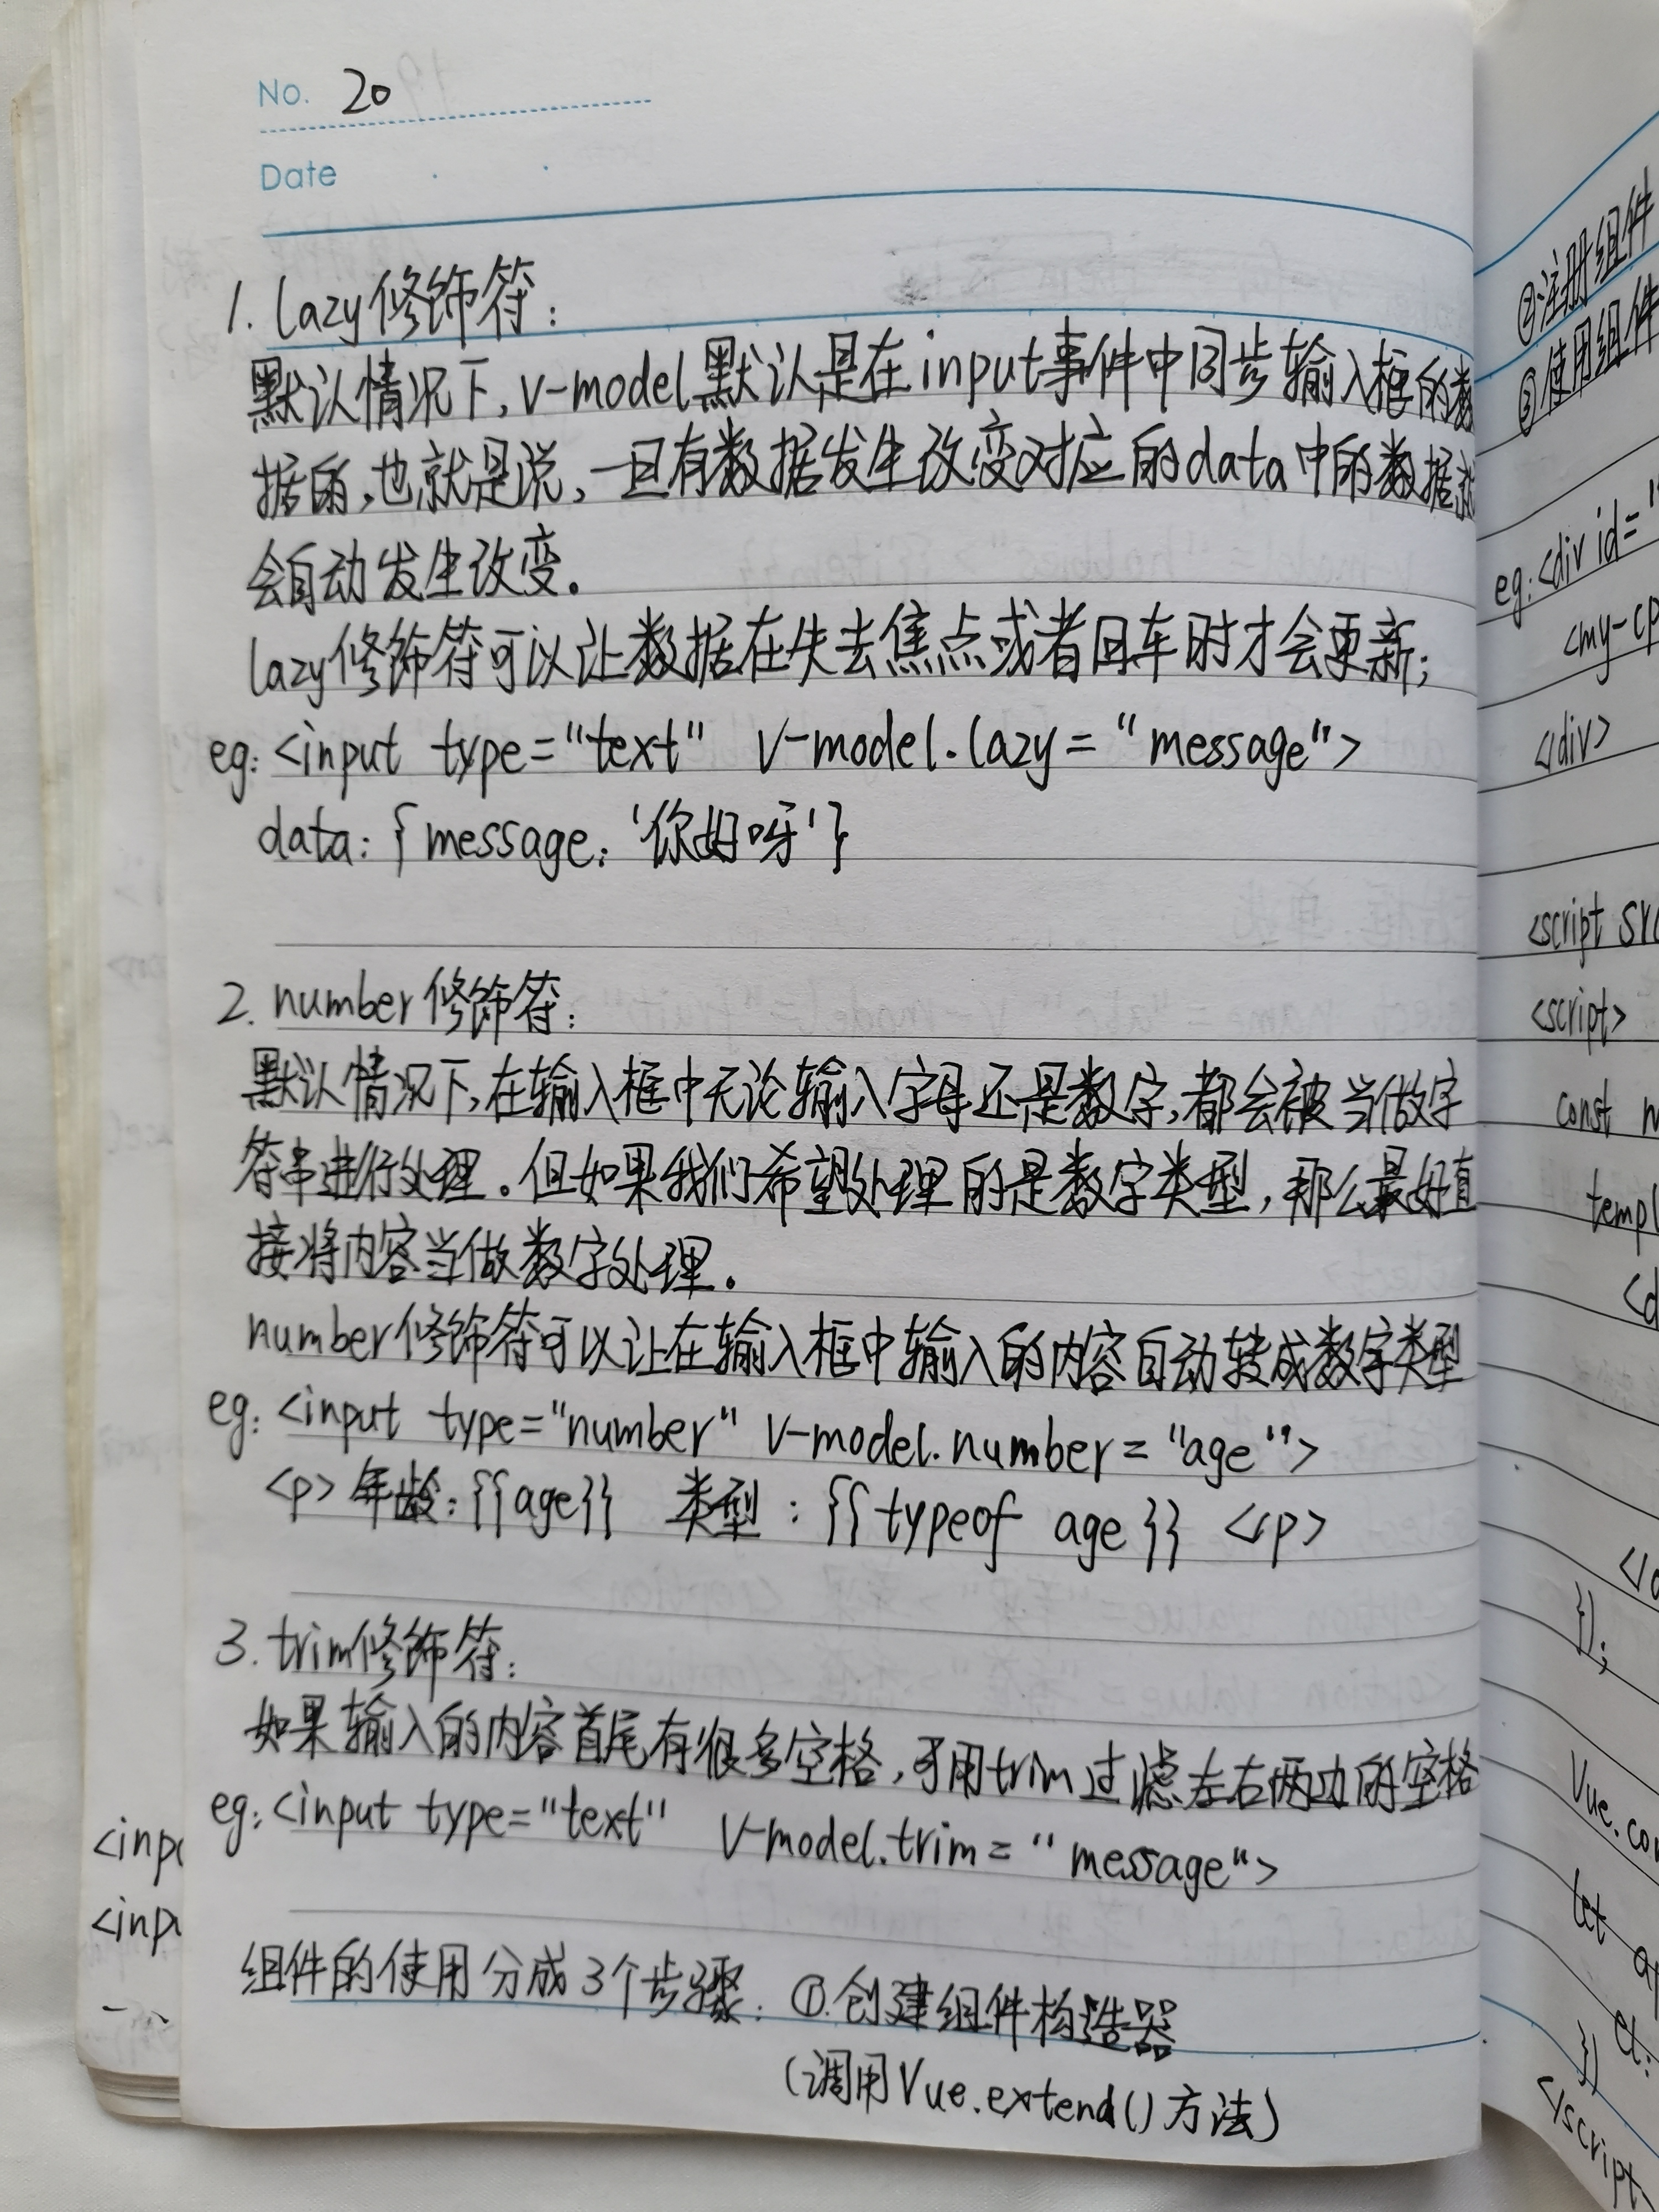 No. 20
Date
1. lazy修饰符:
默认情况下,v-model默认是在input事件中同步输入框的数
据的,也就是说,一旦有数据发生改变对应的data中的数据就
会自动发生改变。
lazy修饰符可以让数据在失去焦点或者回车时才会更新;
eg: <input type="text" v-model.lazy="message">
data: { message: '你好呀'}
2. number修饰符:
默认情况下,在输入框中无论输入字母还是数字,都会被当做字
符串进行处理。但如果我们希望处理的是数字类型,那么最好直
接将内容当做数字处理。
number修饰符可以让在输入框中输入的内容自动转成数字类型
eg: <input type="number" v-model.number="age">
<p>年龄:{{age}} 类型:{{typeof age}} </p>
3. trim修饰符:
如果输入的内容首尾有很多空格,可用trim过滤左右两边的空格
eg: <input type="text" v-model.trim="message">
组件的使用分成3个步骤: ①.创建组件构造器
(调用Vue.extend()方法)
<inp
<inp
②注册组件
③使用组件
eg:<div id="
<my-cp
</div>
<script src
<script>
const m
templ
<d
</d
});
Vue.co
let a
el:
})
</script>